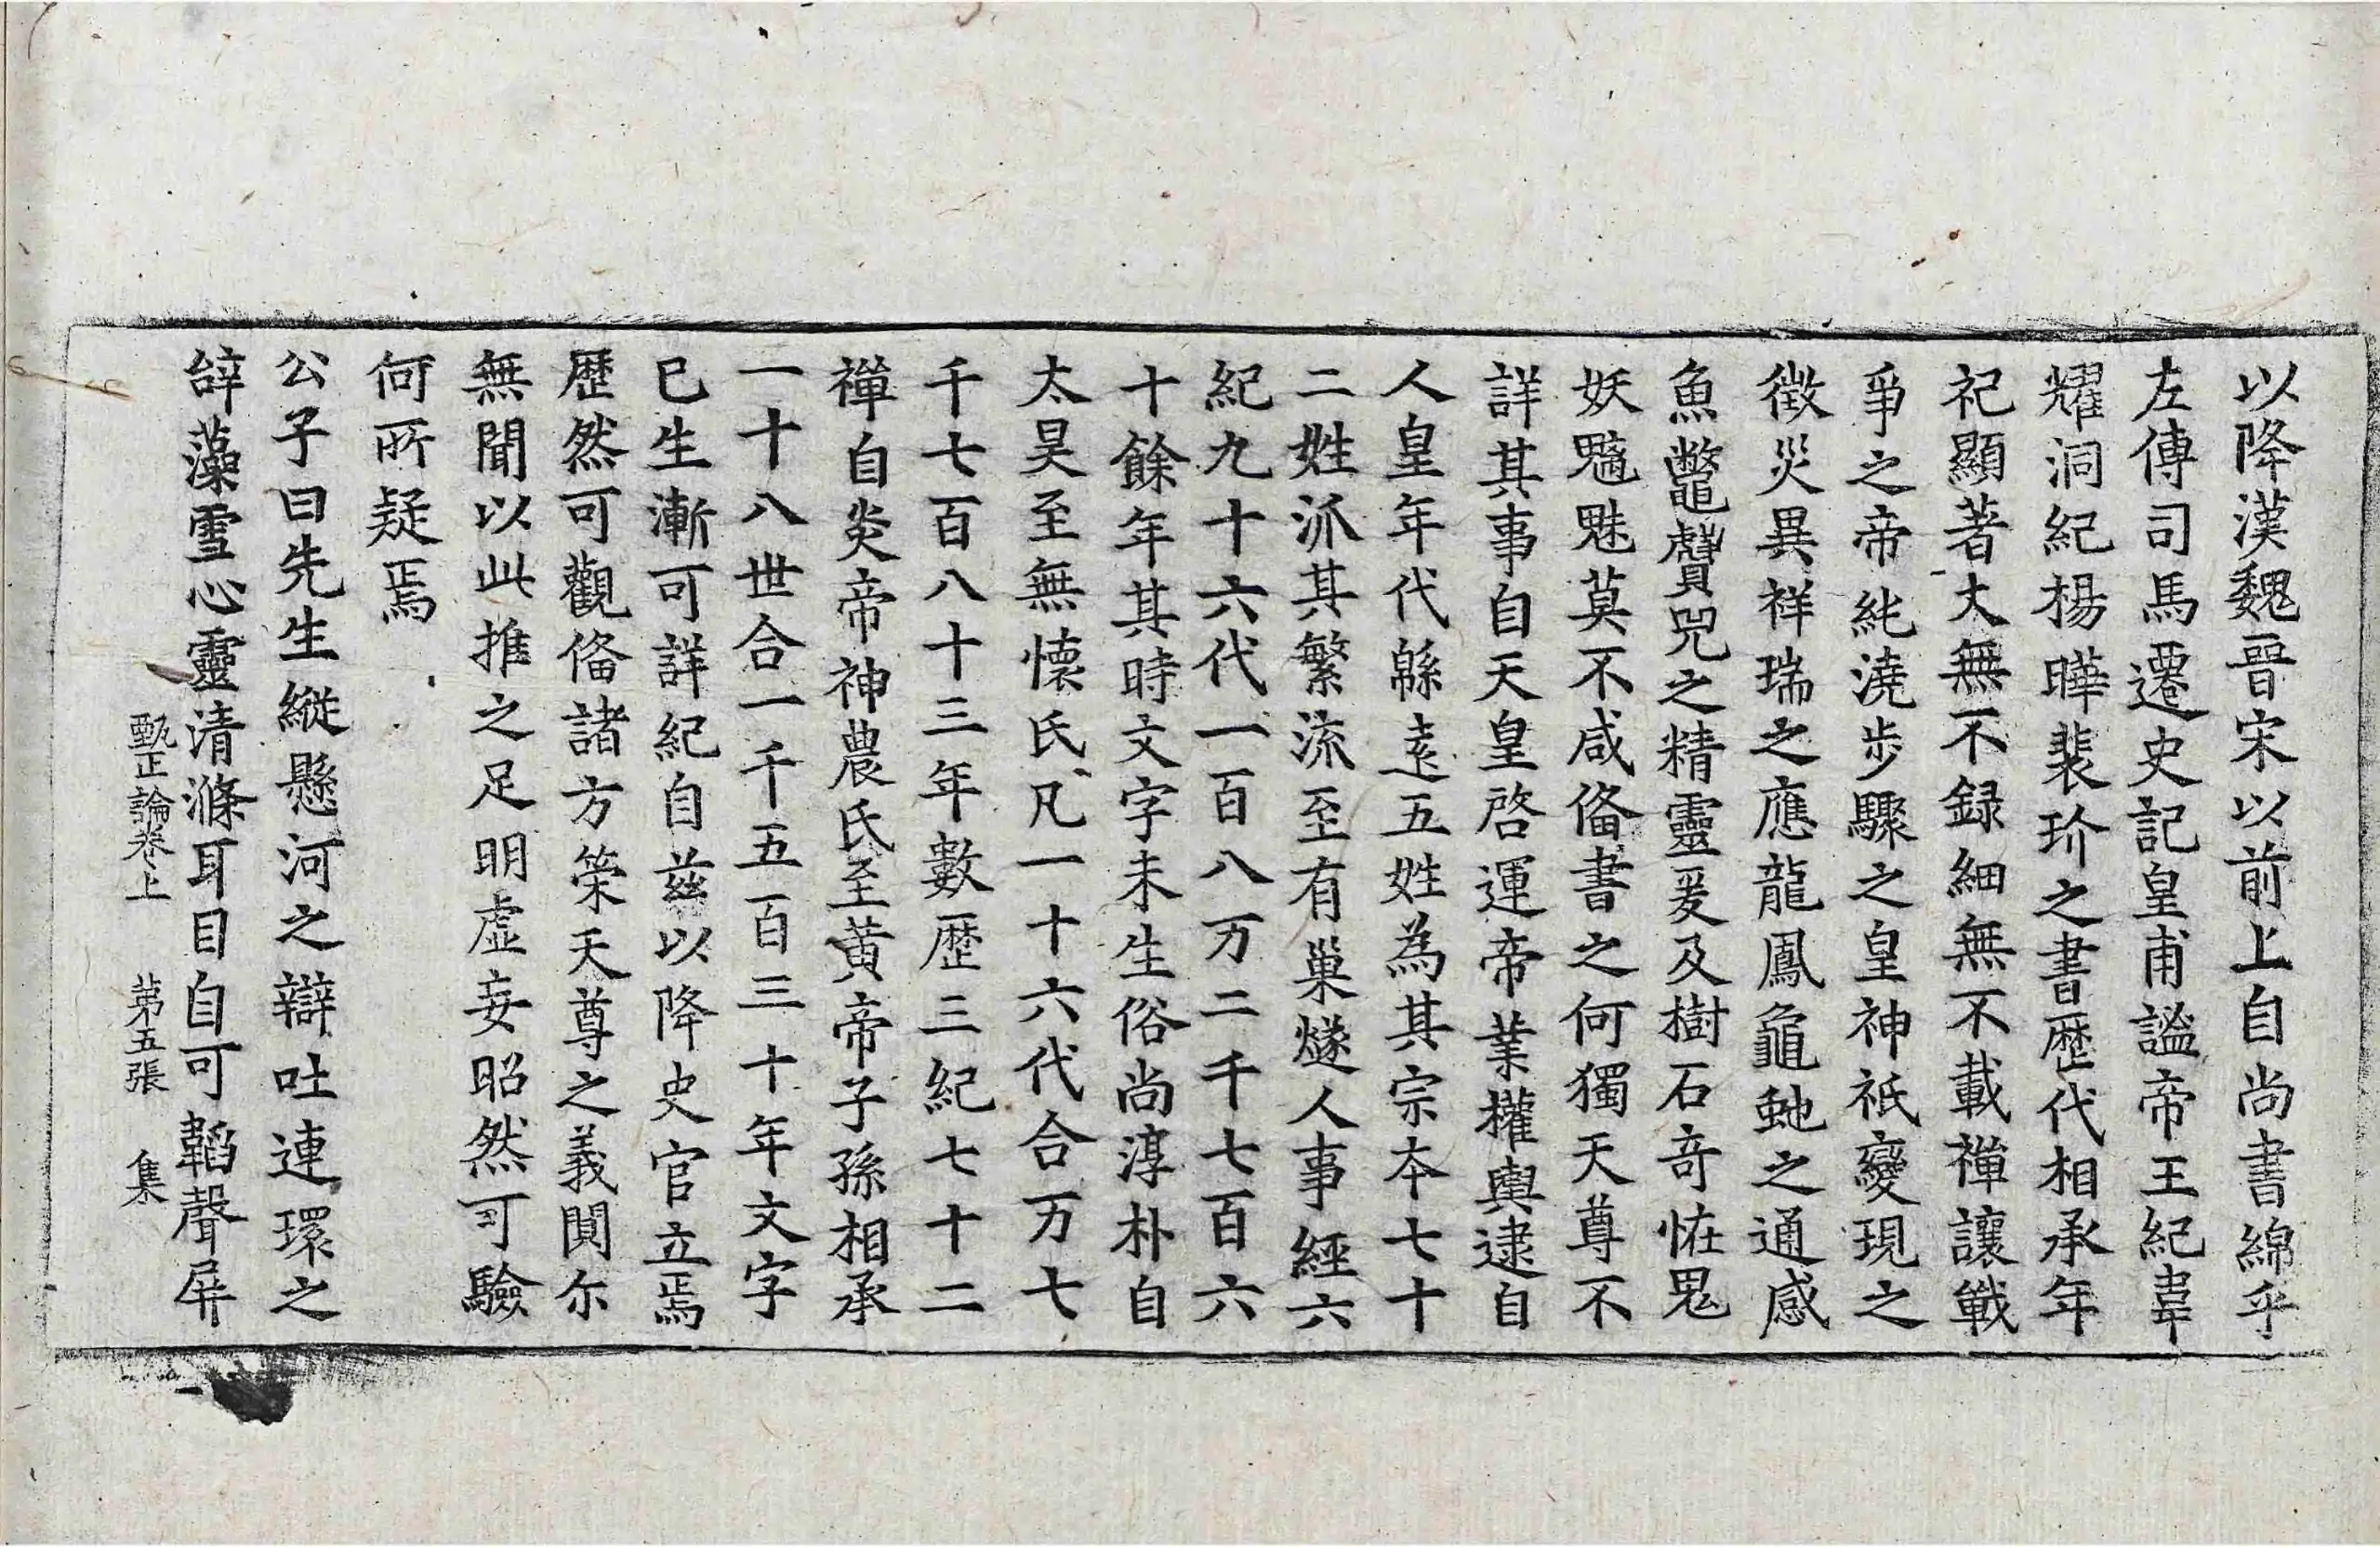 以降漢魏晉宋以前上自尚書綿乎
左傳司馬遷史記皇甫謐帝王紀韋
耀洞紀楊曄裴玠之書歷代相承年
祀顯著大無不録細無不載禪讓戰
爭之帝純澆步驟之皇神祇變現之
徵災異祥瑞之應龍鳳龜虵之通感
魚鼈鼖咒之精靈爰及樹石奇恠鬼
妖魑魅莫不咸俻書之何獨天尊不
詳其事自天皇啓運帝業權輿逮自
人皇年代緜遠五姓為其宗夲七十
二姓派其繁流至有巢燧人事經六
紀九十六代一百八万二千七百六
十餘年其時文字未生俗尚淳朴自
太昊至無懷氏凡一十六代合万七
千七百八十三年數歷三紀七十二
禪自炎帝神農氏至黄帝子孫相承
一十八世合一千五百三十年文字
巳生漸可詳紀自兹以降史官立焉
歷然可觀俻諸方䇿天尊之義闃尓
無聞以此推之足明虚妄昭然可驗
何所疑焉
公子曰先生縱懸河之辯吐連環之
辝藻雪心靈清滌耳目自可韜聲屏
甄正論卷上 第五張 集